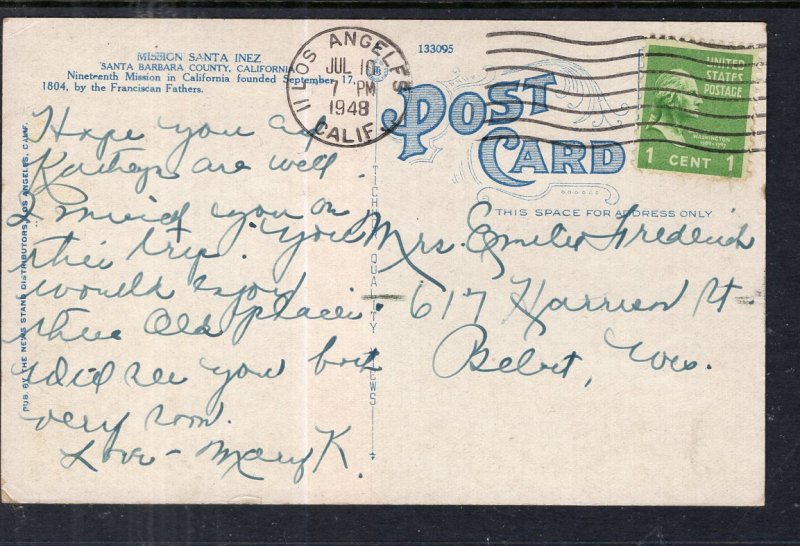 MISSION SANTA INEZ
SANTA BARBARA COUNTY, CALIFORNIA
Nineteenth Mission in California founded September 17,
1804, by the Franciscan Fathers.
133095
LOS ANGELES
11
JUL 10
7 PM
1948
CALIF.
UNITED
STATES
POSTAGE
WASHINGTON
1 CENT 1
POST
CARD
THIS SPACE FOR ADDRESS ONLY
PUB. BY THE NEWS STAND DISTRIBUTORS, LOS ANGELES, CALIF.
QUALITY VIEWS
Hope you and
are well.
I missed you on
this trip. You
would enjoy
this old place.
Will see you
very soon.
Love - Mary K.
Mrs. Frederick
617 Harrison St
Beloit, Wis.